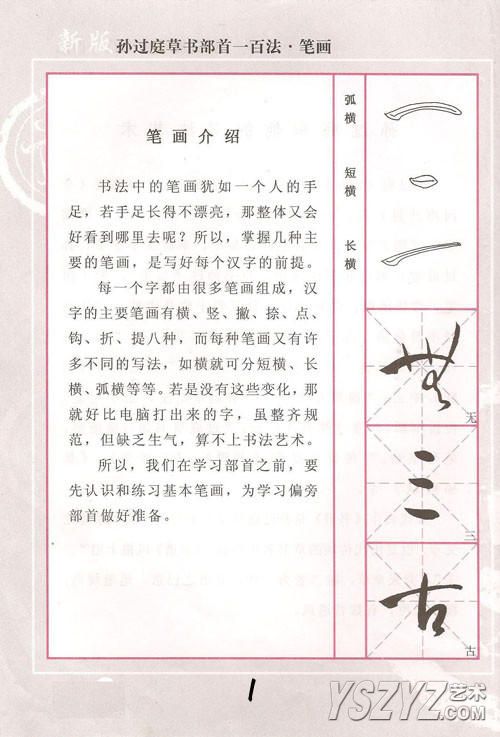 新版 孙过庭草书部首一百法·笔画
笔画介绍
书法中的笔画犹如一个人的手
足，若手足长得不漂亮，那整体又会
好看到哪里去呢？所以，掌握几种主
要的笔画，是写好每个汉字的前提。
每一个字都由很多笔画组成，汉
字的主要笔画有横、竖、撇、捺、点、
钩、折、提八种，而每种笔画又有许
多不同的写法，如横就可分短横、长
横、弧横等等。若是没有这些变化，那
就好比电脑打出来的字，虽整齐规
范，但缺乏生气，算不上书法艺术。
所以，我们在学习部首之前，要
先认识和练习基本笔画，为学习偏旁
部首做好准备。
弧横
短横
长横
無
无
三
三
古
古
1
YSZYZ 艺术
.COM